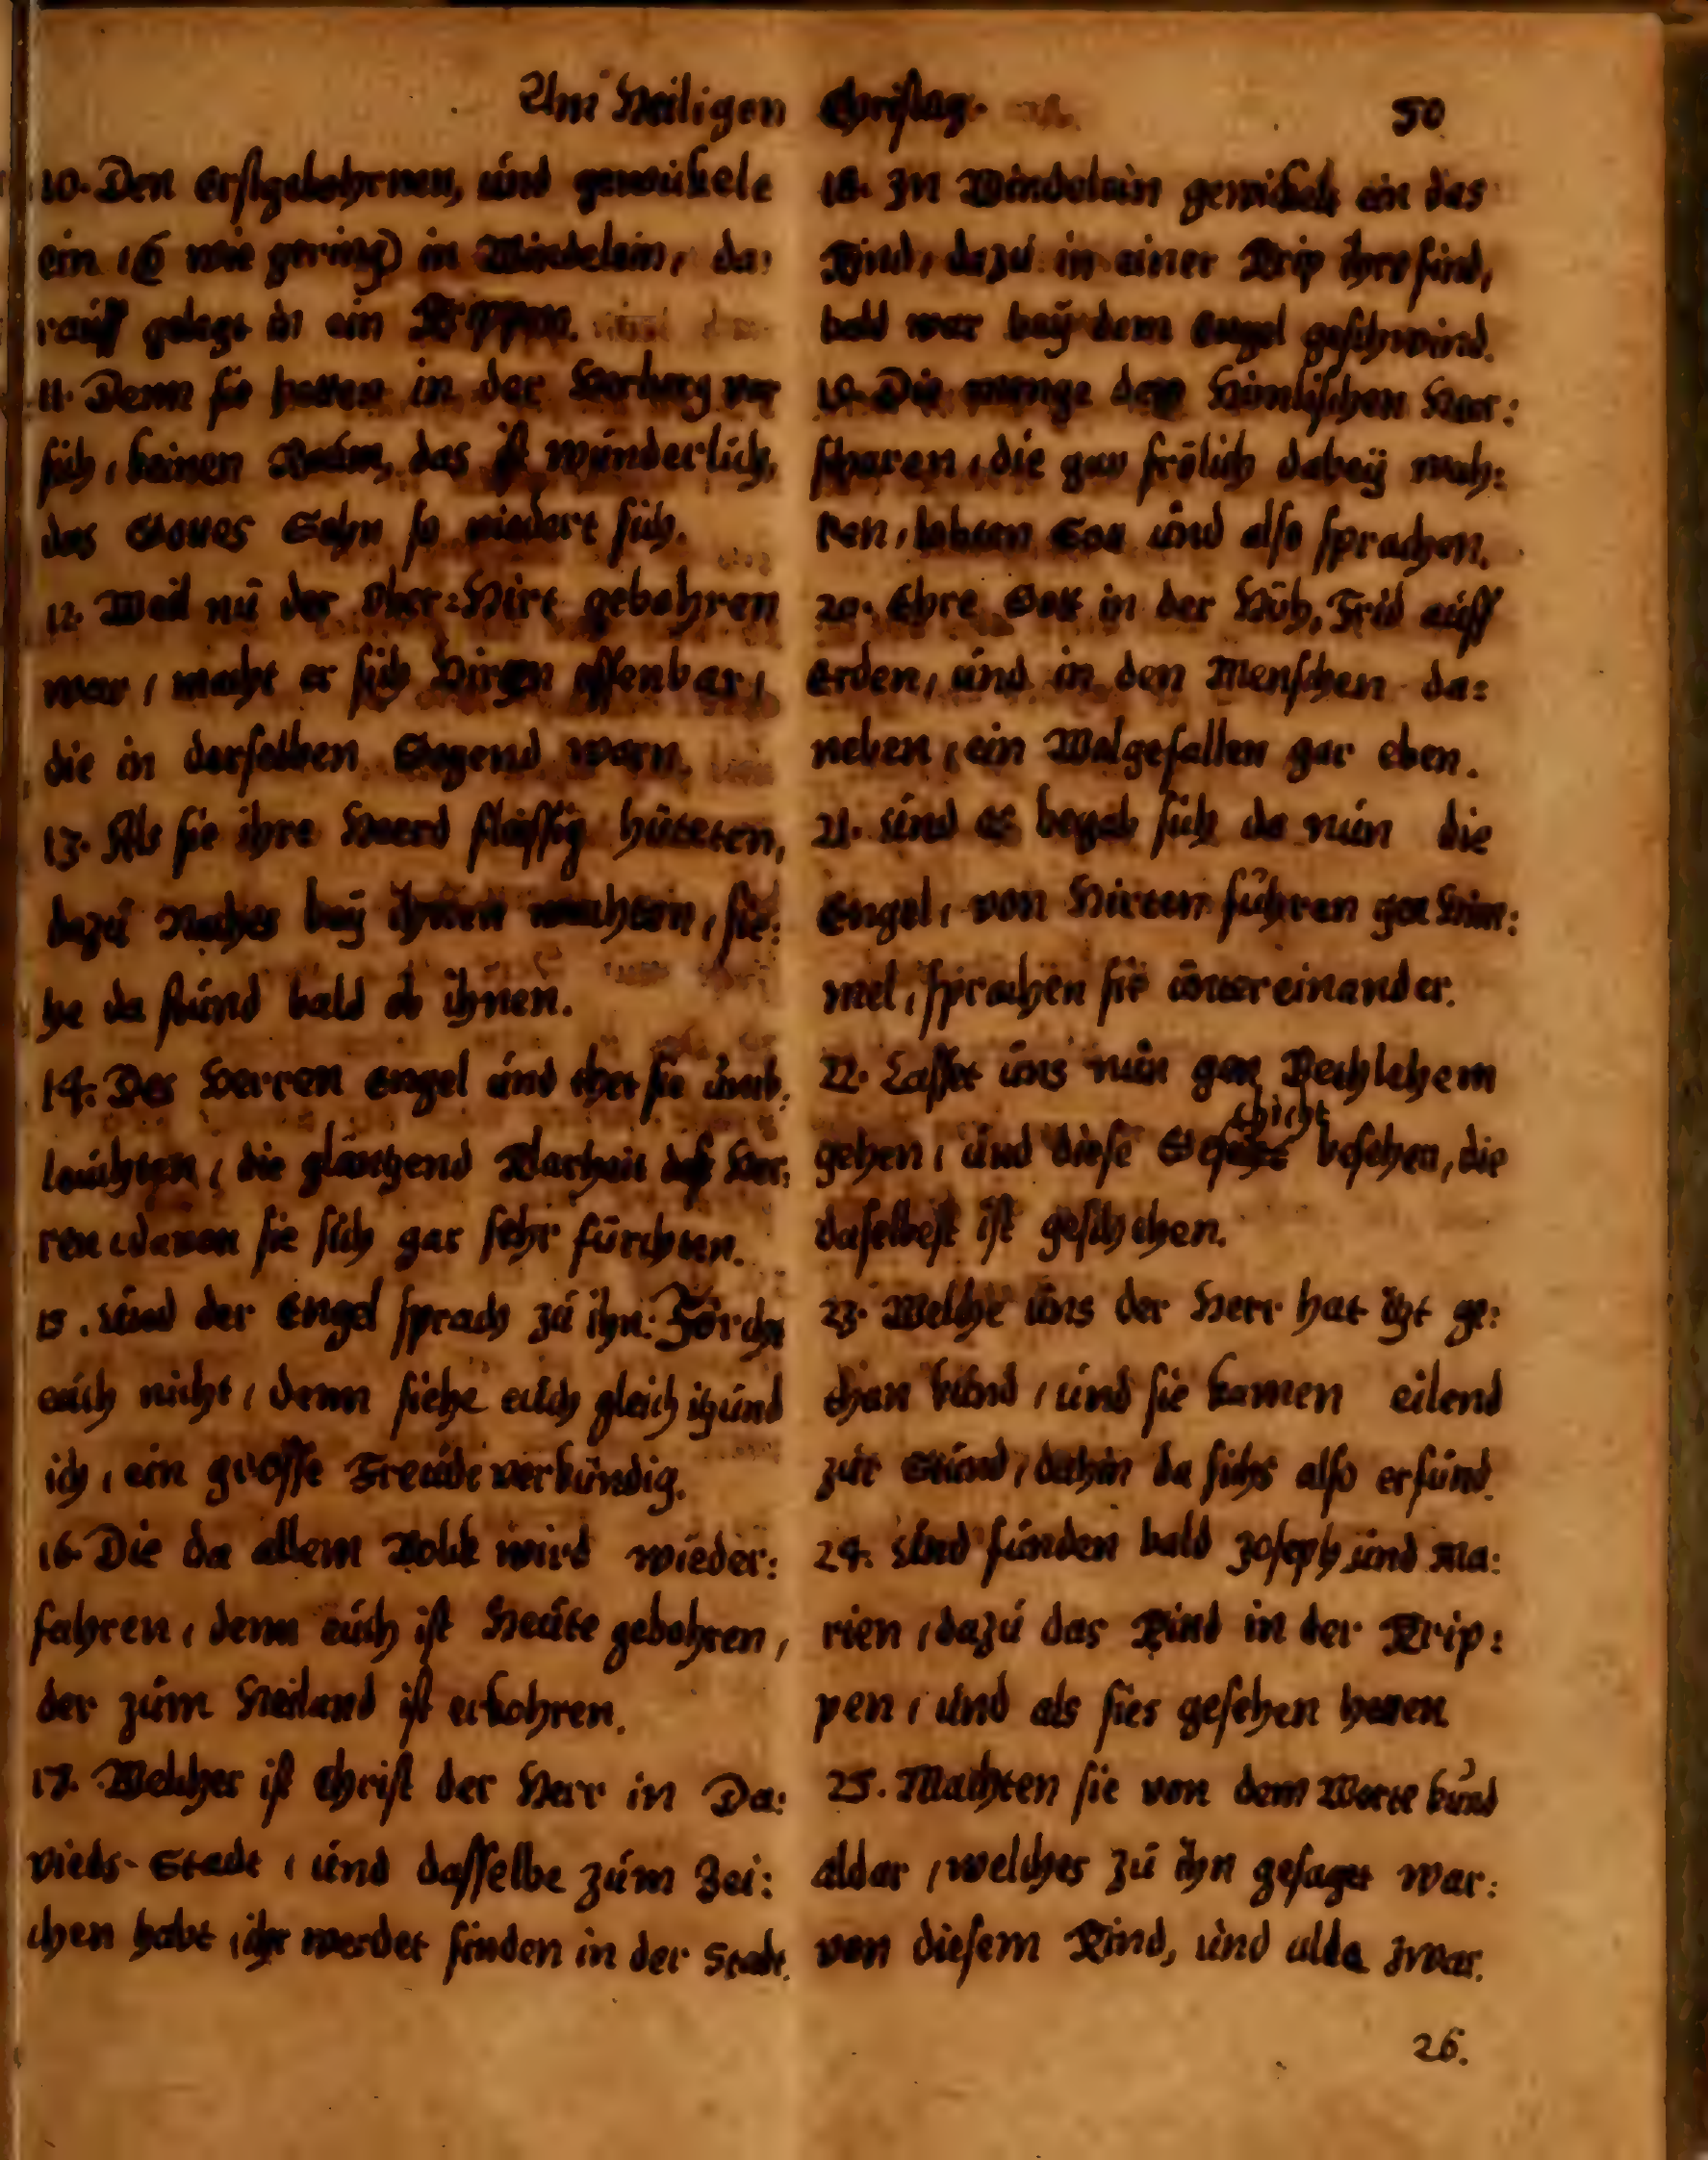 Am Heiligen Christag. 50
10. Den erstgebohrnen, und gewickele
ein (O wie gering) in Windelein, da:
rauff gelegt in ein Krippen.
11. Denn sie hatten in der Herberg vor
sich, keinen Raum, das ist wunderlich,
das Gottes Sohn so niedert sich.
12. Weil nu der Ober=Hirt gebohren
war, macht er sich Hirten offenbar,
die in derselben Gegend warn.
13. Als sie ihre Heerd fleissig hüteten,
dazu Nachts bey ihnen wachten, sie:
he da stund bald ob ihnen.
14. Des Herren Engel und thet sie umb:
leuchten, die gläntzend Klarheit deß Her:
ren, davon sie sich gar sehr fürchten.
15. Und der Engel sprach zu ihn: Förcht
euch nicht, denn siehe euch gleich itzund
ich, ein grosse Freude verkündig.
16. Die da allem Volck wird wieder:
fahren, denn euch ist Heute gebohren,
der zum Heiland ist erkohren.
17. Welcher ist Christ der Herr in Da:
vieds-Stadt, und dasselbe zum Zei:
chen habt, ihr werdet finden in der Stadt.
18. In Windelein gewickelt ein das
Kind, dazu in einer Krip ihrs find,
bald war bey dem Engel geschwind.
19. Die menge der Himlischen Heer:
scharen, die gar frölich dabey wah:
ren, lobten Gott und also sprachen.
20. Ehre Gott in der Höh, Frid auff
Erden, und in den Menschen da:
neben, ein Wolgefallen gar eben.
21. Und es begab sich da nun die
Engel, von Hirten führen gen Him:
mel, sprachen sie untereinander.
22. Lasset uns nun gen Bethlehem
gehen, und diese Geschicht besehen, die
daselbest ist geschehen.
23. Welche uns der Herr hat itzt ge:
than kund, und sie kamen eilend
zur Stund, dahin da sichs also erfund.
24. Und funden bald Joseph und Ma:
rien, dazu das Kind in der Krip:
pen, und als sies gesehen hetten
25. Machten sie von dem Worte kund
aldar, welches zu ihn gesaget war:
von diesem Kind, und alda zwar.
26.